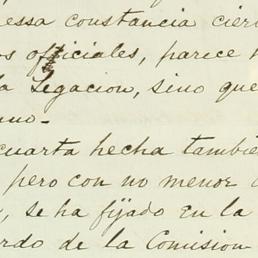 essa constancia cier
os officiales, parece
la Legacion, sino que
no-
cuarta hecha tambie
pero con no menor
, se ha fijado en la
rdo de la Comision